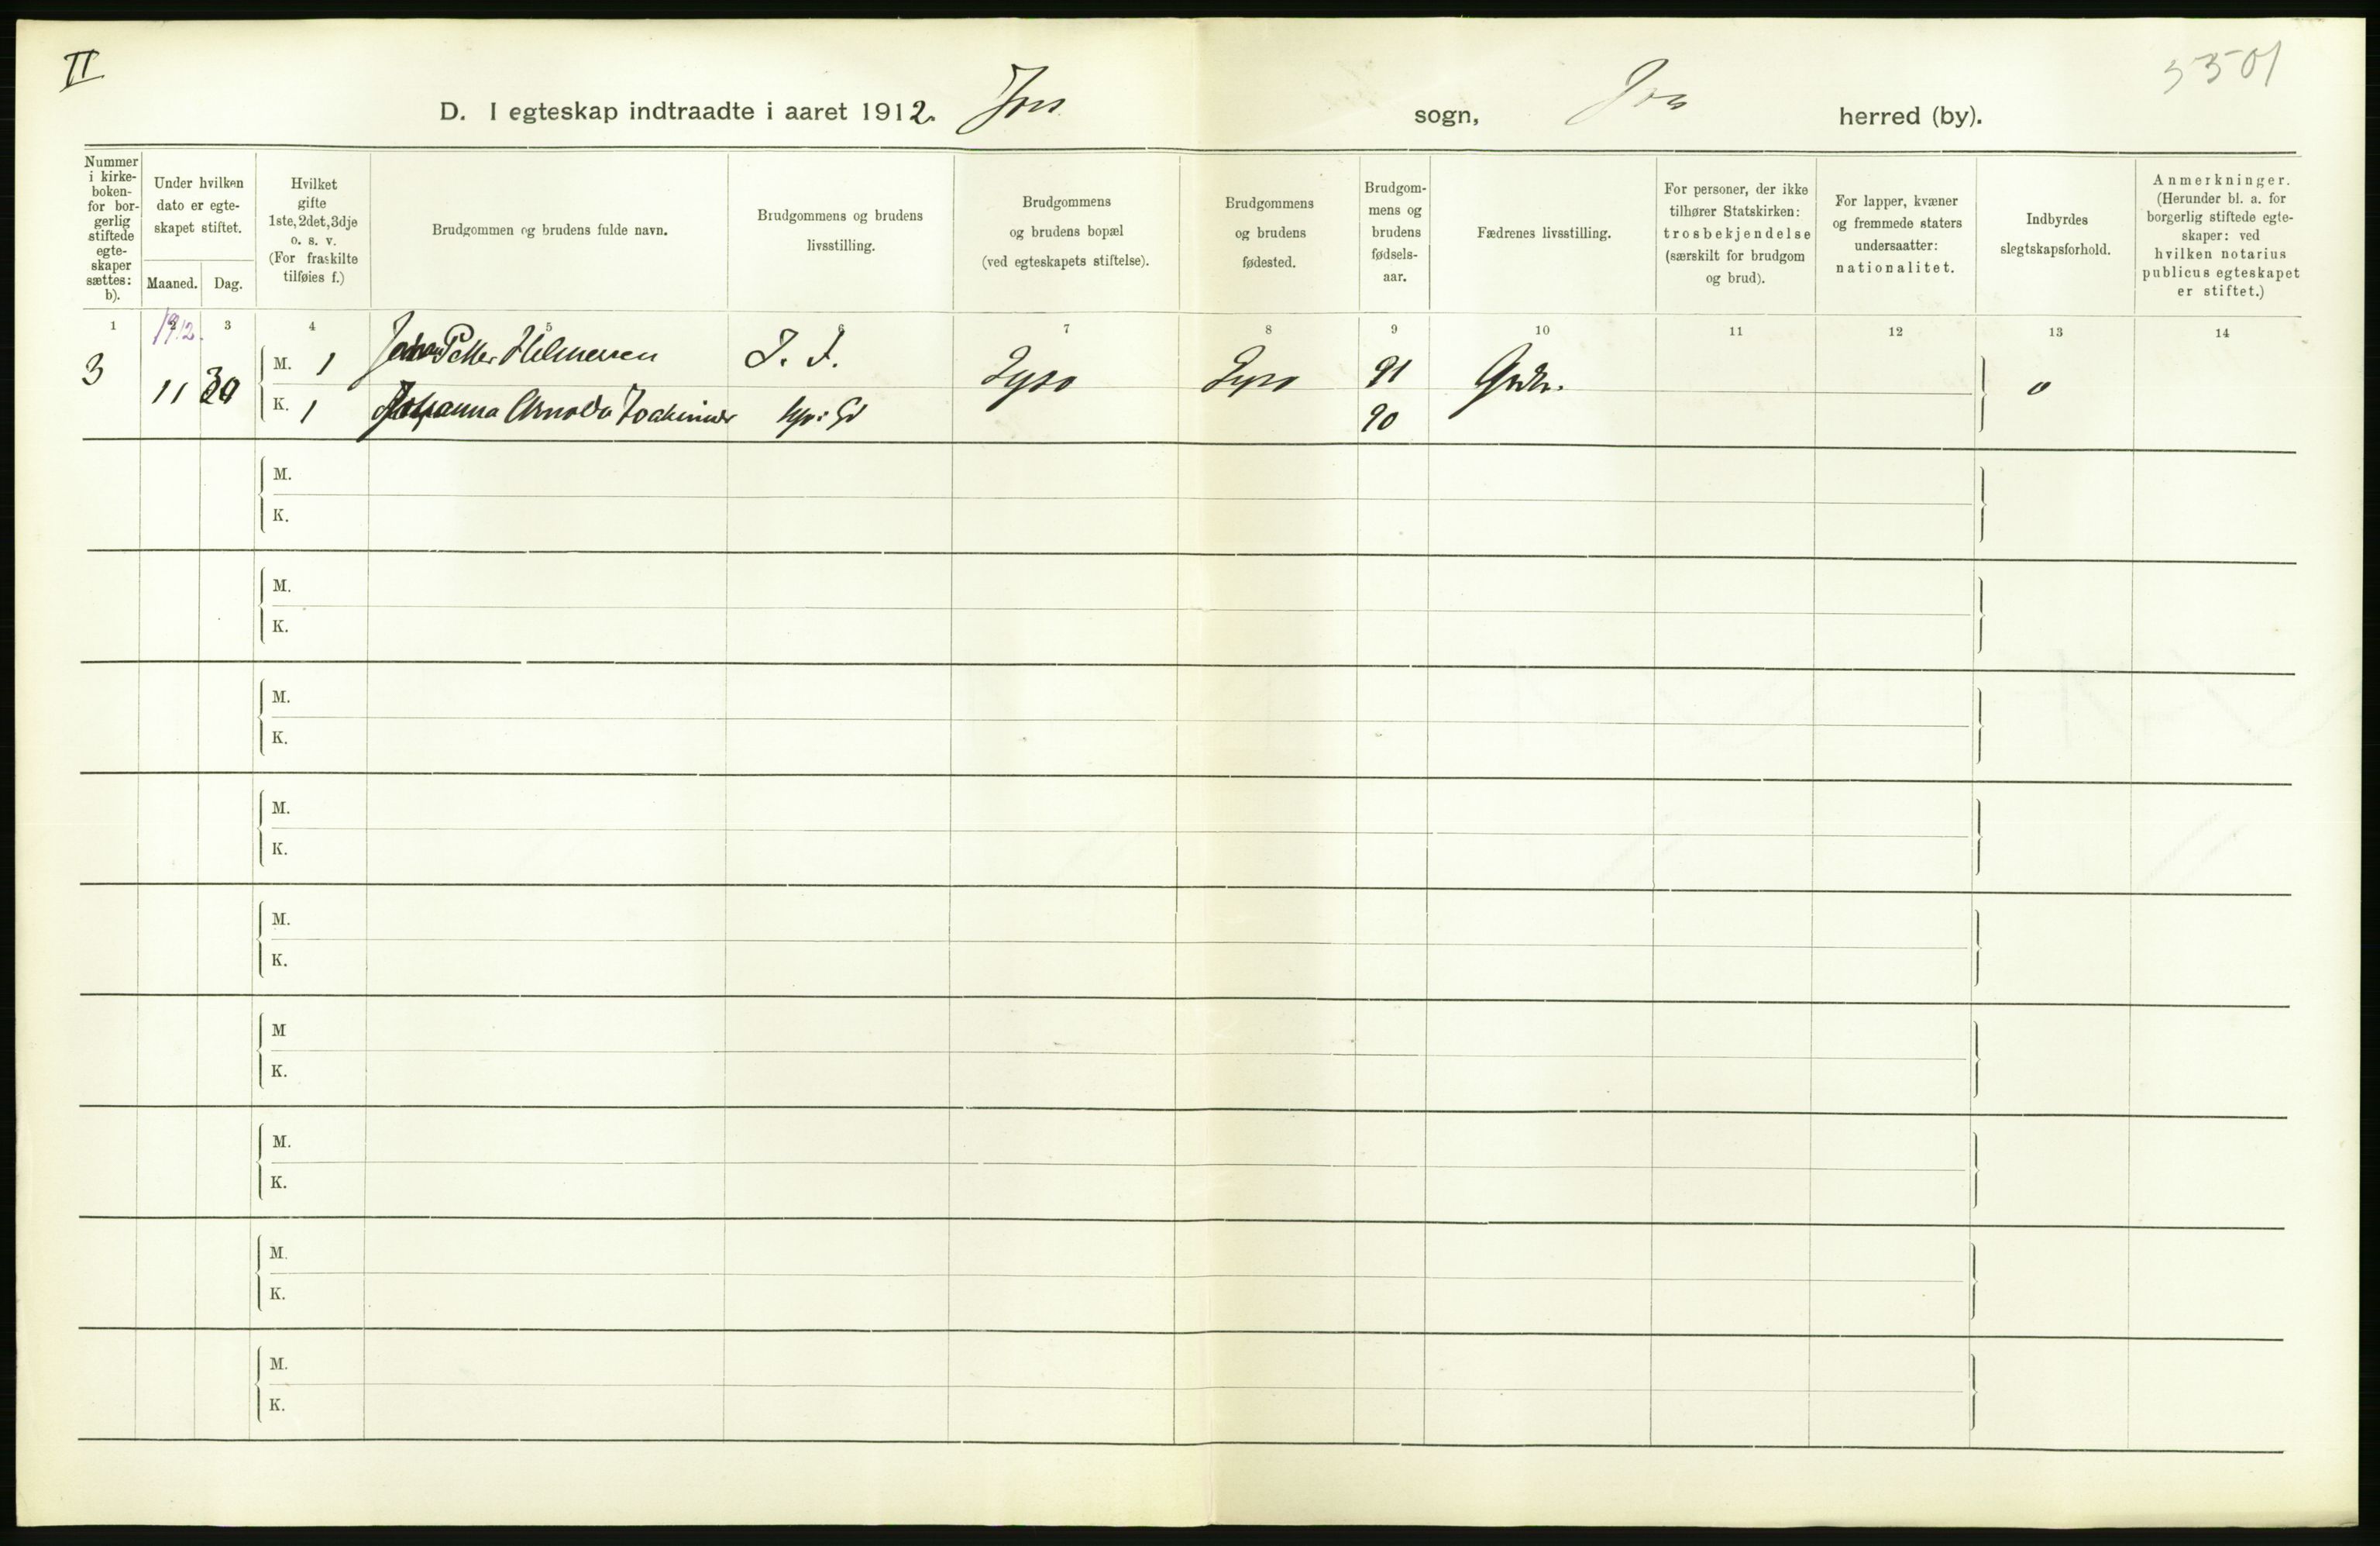 II
5501
D. I egteskap indtraadte i aaret 1912. Jøss sogn, herred (by).
Nummer i kirkeboken- for borgerlig stiftede egteskaper sættes: b).
Under hvilken dato er egteskapet stiftet.
Maaned. Dag.
Hvilket gifte 1ste, 2det, 3dje o. s. v. (For fraskilte tilføies f.)
Brudgommen og brudens fulde navn.
Brudgommens og brudens livsstilling.
Brudgommens og brudens bopæl (ved egteskapets stiftelse).
Brudgommens og brudens fødested.
Brudgommens og brudens fødselsaar.
Fædrenes livsstilling.
For personer, der ikke tilhører Statskirken: trosbekjendelse (særskilt for brudgom og brud).
For lapper, kvæner og fremmede staters undersaatter: nationalitet.
Indbyrdes slegtskapsforhold.
Anmerkninger. (Herunder bl. a. for borgerlig stiftede egteskaper: ved hvilken notarius publicus egteskapet er stiftet.)
1 2 3 4 5 6 7 8 9 10 11 12 13 14
1912.
3 11 30
M. 1 Johan Petter Hilmersen 91
K. 1 Johanna Arnolda 90
0
M.
K.
M.
K.
M.
K.
M.
K.
M.
K.
M
K.
M.
K.
M.
K.
M.
K.